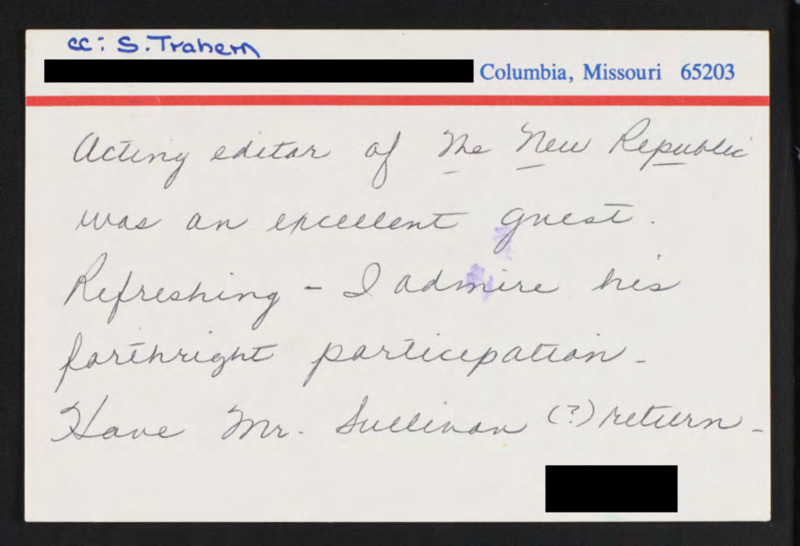 cc: S. Trahern
Columbia, Missouri 65203
Acting editor of The New Republic
was an excellent guest.
Refreshing - I admire his
forthright participation -
Have Mr. Sullivan (?) return -